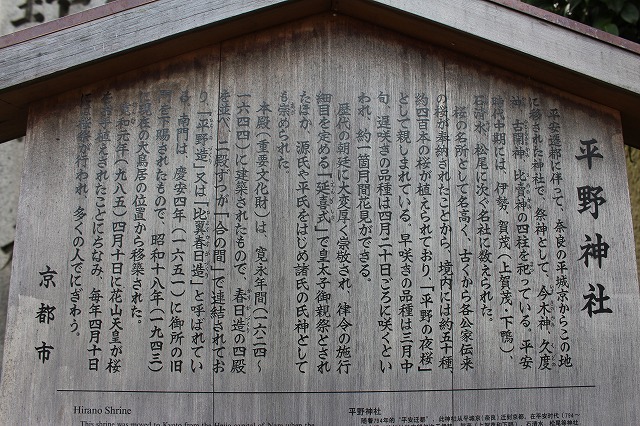 平野神社
平安遷都に伴って、奈良の平城京からこの地
に移された神社で、祭神として、今木神、久度
神、古開神、比賣神の四柱を祀っている。平安
時代中期には、伊勢、賀茂（上賀茂・下鴨）、
石清水、松尾に次ぐ名社に数えられた。
桜の名所として名高く、古くから各公家伝来
の桜が奉納されたことから、境内には約五十種、
約四百本の桜が植えられており、「平野の夜桜」
として親しまれている。早咲きの品種は三月中
旬、遅咲きの品種は四月二十日ごろに咲くとい
われ、約一箇月間花見ができる。
歴代の朝廷に大変厚く崇敬され、律令の施行
細目を定める「延喜式」で皇太子御親祭とされ
たほか、源氏や平氏をはじめ諸氏の氏神として
も崇められた。
本殿（重要文化財）は、寛永年間（一六二四～
一六四四）に建築されたもので、春日造の四殿
を並べ、二殿ずつが「合の間」で連結されてお
り、「平野造」又は「比翼春日造」と呼ばれてい
る。南門は、慶安四年（一六五一）に御所の旧
門を下賜されたもので、昭和十八年（一九四三）
に現在の大鳥居の位置から移築された。
和元年（九八五）四月十日に花山天皇が桜
を植えされたことにちなみ、毎年四月十日
に桜祭が行われ、多くの人でにぎわう。
京都市
Hirano Shrine
This shrine was moved to Kyoto from the Heijo capital of Nara when the
平野神社
随着794年的“平安迁都”，此神社从平城京(奈良)迁到京都。在平安时代（794～